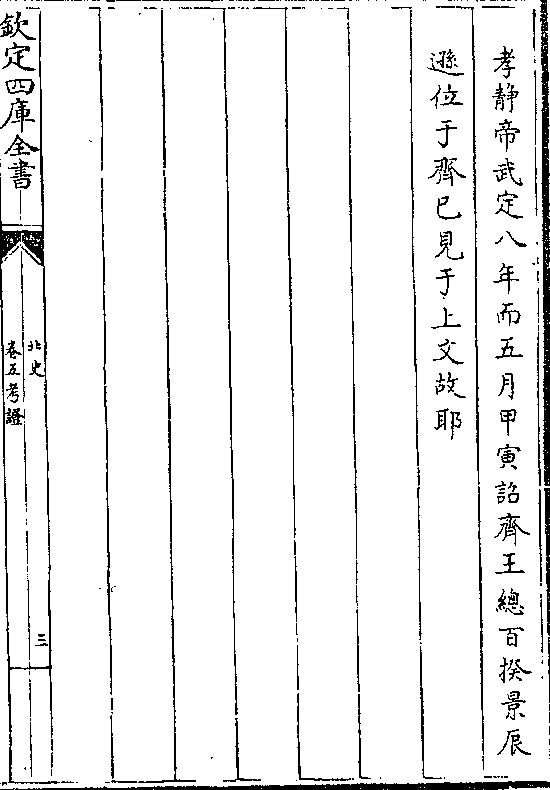 孝静帝武定八年而五月甲寅詔齊王總百揆景辰
遜位于齊已見于上文故耶
欽定四庫全書
北史
卷五考證
三